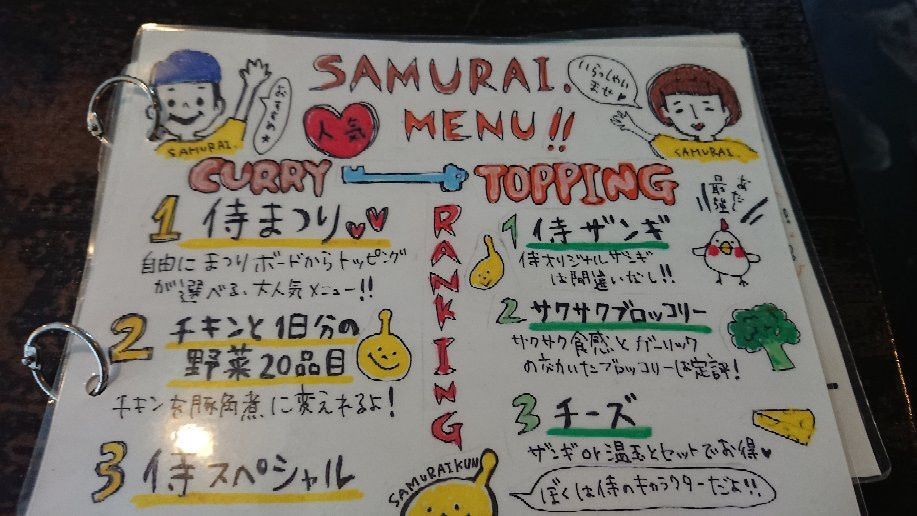 SAMURAI.
MENU!!
人気
おすすめ★
いらっしゃい
ませ♥
SAMURAI.
SAMURAI.
CURRY
TOPPING
RANKING
1 侍まつり♥♥
自由にまつりボードからトッピング
が選べる、大人気メニュー!!
2 チキンと1日分の
野菜20品目
チキンを豚角煮に変えれるよ!
3 侍スペシャル
1 侍ザンギ
侍オリジナルザンギ
は間違いなし!!
最強
2 サクサクブロッコリー
サクサク食感とガーリック
の効いたブロッコリーは定評!
3 チーズ
ザンギor温玉とセットでお得♥
SAMURAIKUN
ぼくは侍のキャラクターだよ!!